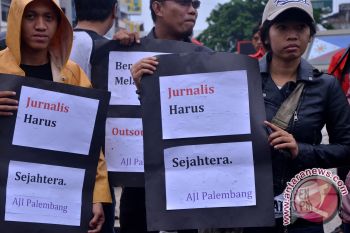 Jurnalis
Harus
Sejahtera.
AJI Palembang
Outso
Jurnalis
Harus
Sejahtera.
AJI Palembang
antaranews.com